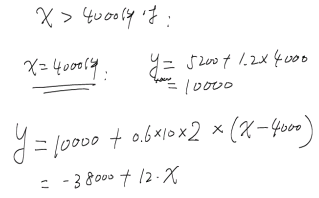 X > 4000份时:
X=4000份: y = 5200+1.2×4000
= 10000
y = 10000 + 0.6×10×2 ×(X-4000)
= -38000+12·X